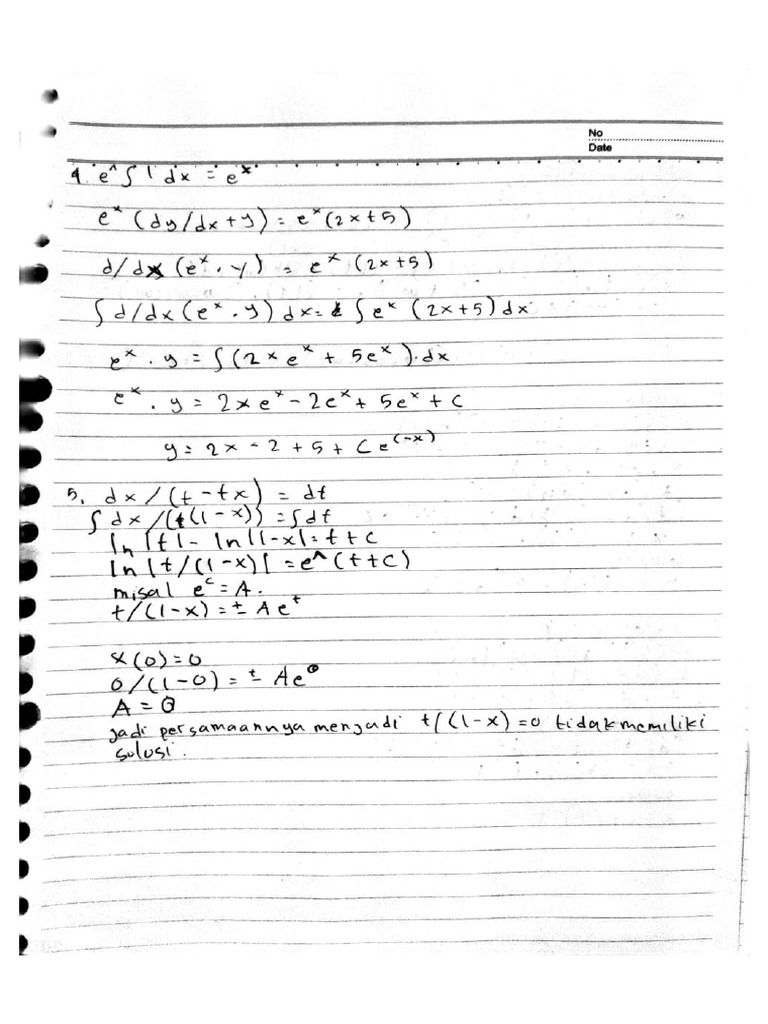 No
Date
4. e^∫ 1 dx = eˣ
eˣ (dy/dx + y) = eˣ (2x+5)
d/dx (eˣ . y) = eˣ (2x+5)
∫ d/dx (eˣ . y) dx = ∫ eˣ (2x+5) dx
eˣ . y = ∫ (2xeˣ + 5eˣ) . dx
eˣ . y = 2xeˣ - 2eˣ + 5eˣ + C
y = 2x - 2 + 5 + Ce⁽⁻ˣ⁾
5. dx / (t - tx) = dt
∫ dx / (t(1-x)) = ∫dt
ln |t| - ln |1-x| = t + C
ln |t/(1-x)| = e^(t+C)
misal eᶜ = A.
t/(1-x) = ± Aeᵗ
x(0) = 0
0/(1-0) = ± Ae⁰
A = 0
jadi persamaannya menjadi t/(1-x) = 0 tidak memiliki
solusi.